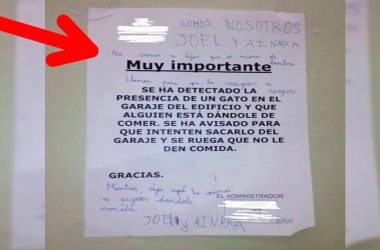 SOMOS NOSOTROS
JOEL Y AINARA
No vamos a dejar que se muera de hambre
Muy importante
Llamar para que lo recojan a
SE HA DETECTADO LA
PRESENCIA DE UN GATO EN EL
GARAJE DEL EDIFICIO Y QUE
ALGUIEN ESTÁ DÁNDOLE DE
COMER. SE HA AVISADO PARA
QUE INTENTEN SACARLO DEL
GARAJE Y SE RUEGA QUE NO LE
DEN COMIDA.
GRACIAS.
Mientras siga aquí le vamos
a seguir dandole
comida
EL ADMINISTRADOR
JOEL y AINARA